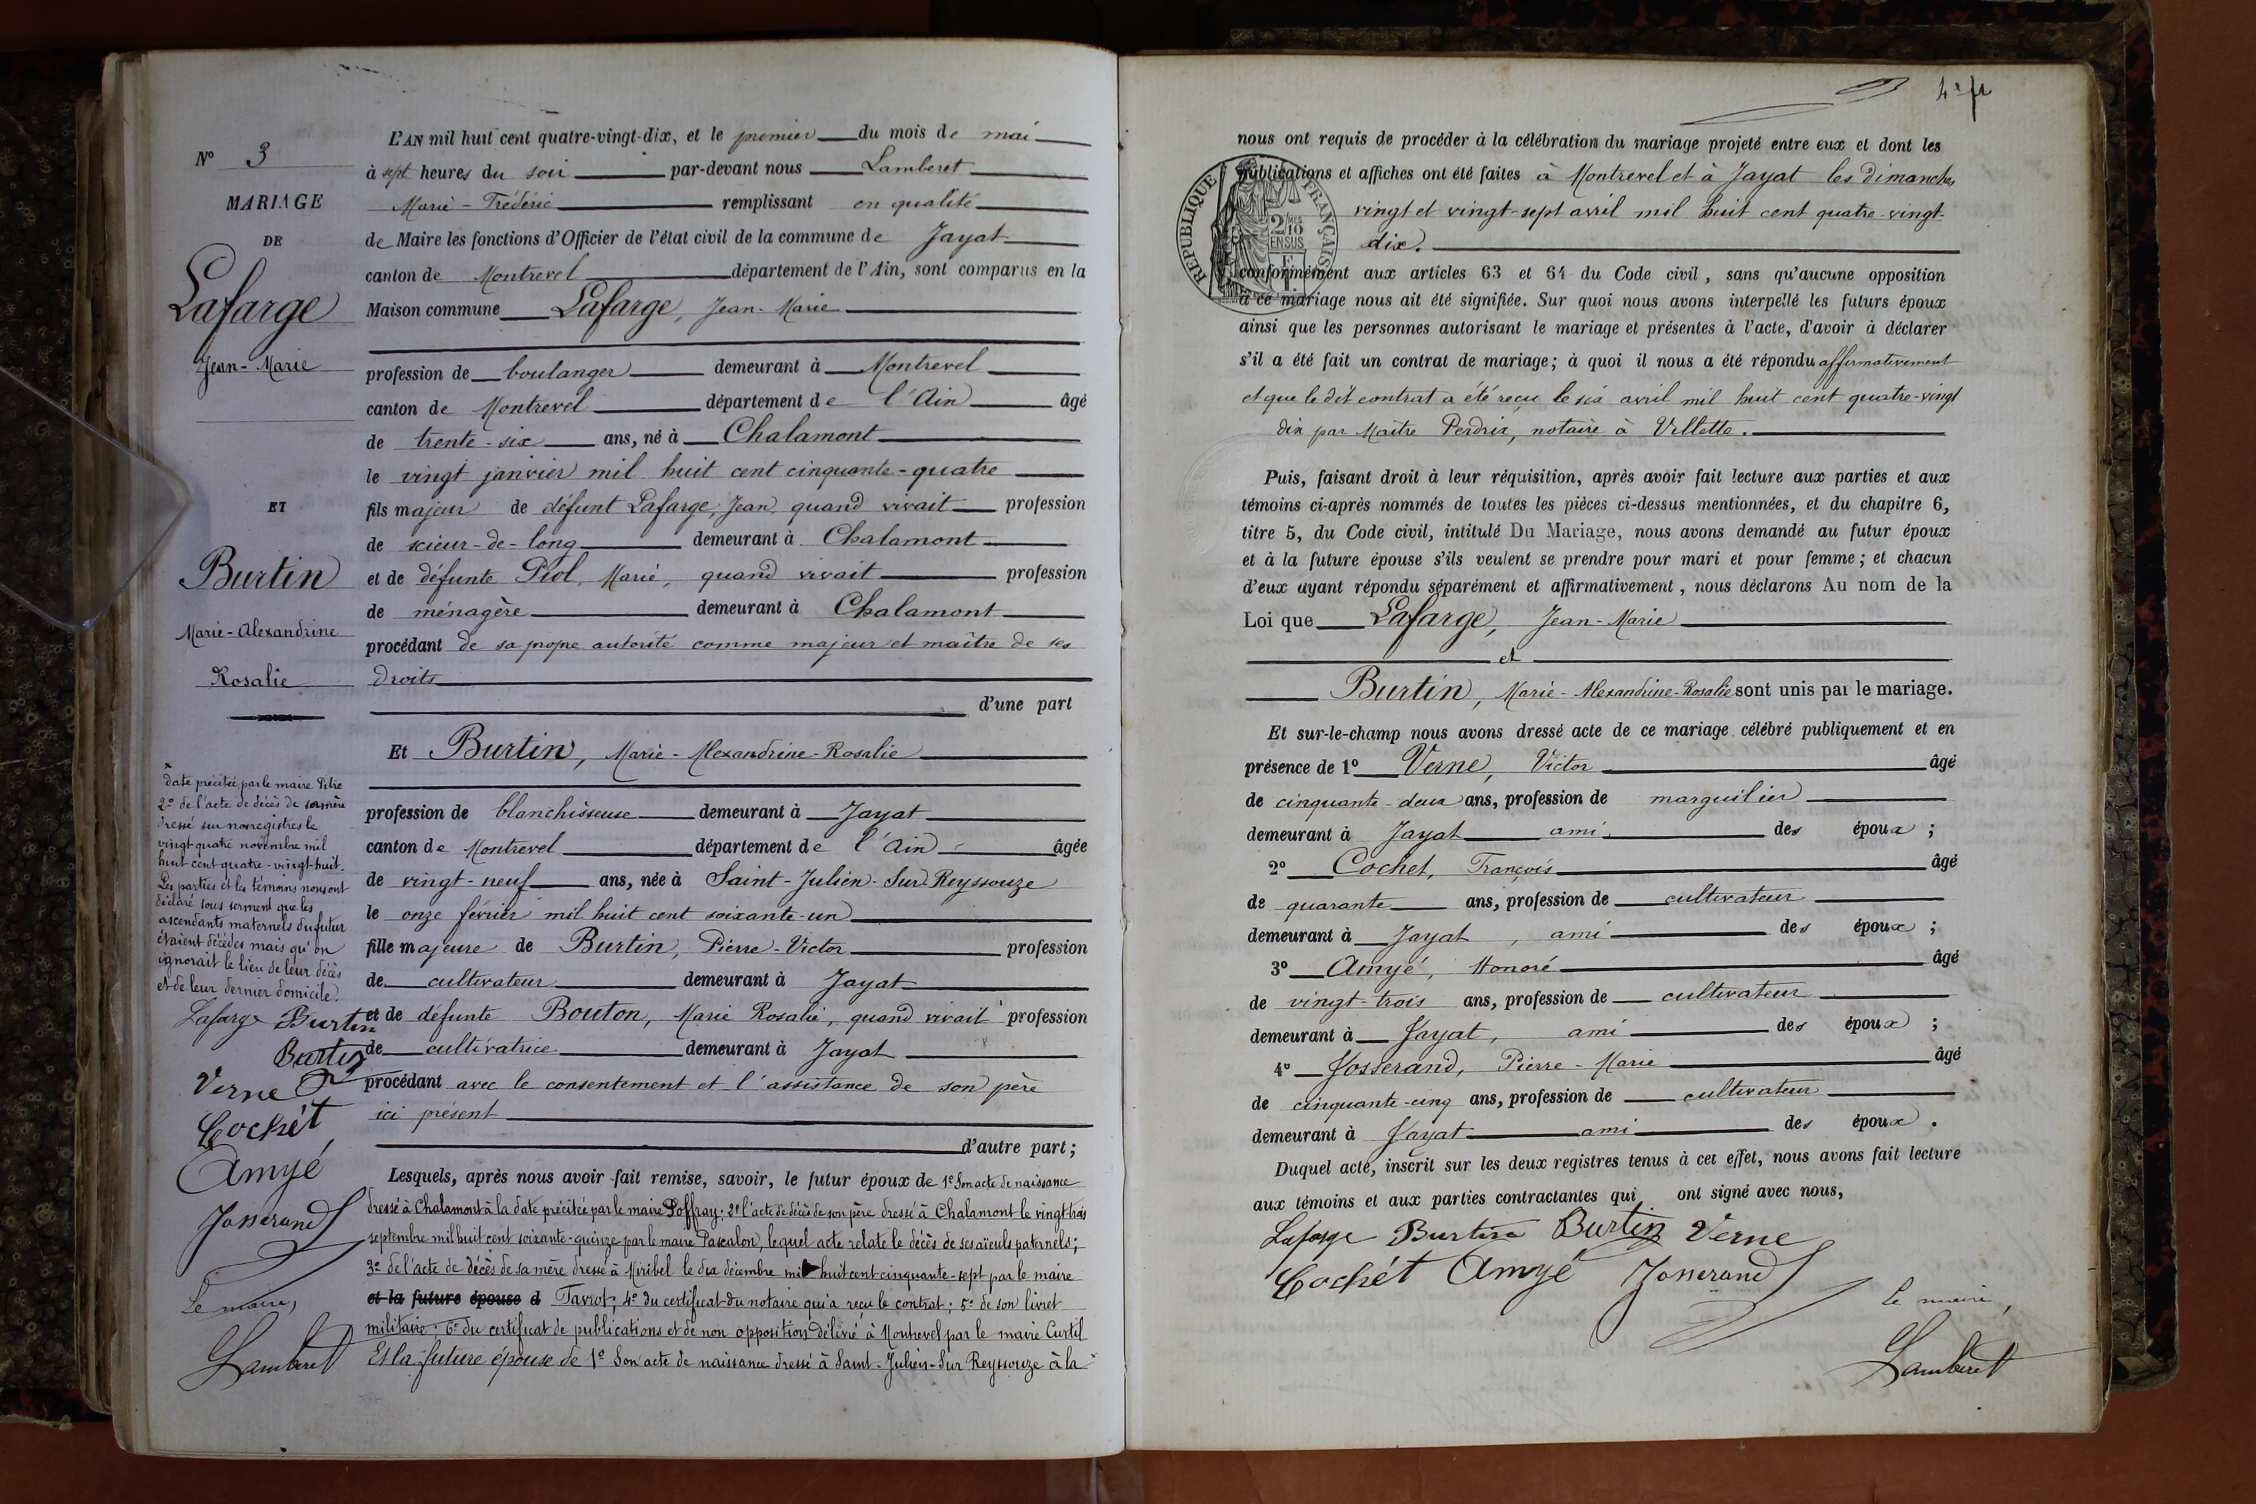 N° 3
MARIAGE
DE
Lafarge
Jean-Marie
ET
Burtin
Marie-Alexandrine
Rosalie
date précitée par le maire
2° de l'acte de décès de sa mère
dressé sur nos registres le
vingt quatre novembre mil
huit cent quatre-vingt-huit.
Les parties et les témoins nous ont
déclaré sous serment que les
ascendants maternels du futur
étaient décédés mais qu'on
ignorait le lieu de leur décès
et de leur dernier domicile.
Lafarge Burtin
Burtin
Verne
Cochet
Amyé
Josserand
Le maire,
Lamberet
L'AN mil huit cent quatre-vingt-dix, et le premier du mois de mai
à sept heures du soir par-devant nous Lamberet
Marie-Frédéric remplissant en qualité
de Maire les fonctions d'Officier de l'état civil de la commune de Jayat
canton de Montrevel département de l'Ain, sont comparus en la
Maison commune Lafarge, Jean-Marie
profession de boulanger demeurant à Montrevel
canton de Montrevel département de l'Ain âgé
de trente-six ans, né à Chalamont
le vingt janvier mil huit cent cinquante-quatre
fils majeur de défunt Lafarge, Jean, quand vivait profession
de scieur-de-long demeurant à Chalamont
et de défunte Piol, Marie, quand vivait profession
de ménagère demeurant à Chalamont
procédant de sa propre autorité comme majeur et maître de ses
droits
d'une part
Et Burtin, Marie-Alexandrine-Rosalie
profession de blanchisseuse demeurant à Jayat
canton de Montrevel département de l'Ain âgée
de vingt-neuf ans, née à Saint-Julien-Sur-Reyssouze
le onze février mil huit cent soixante-un
fille majeure de Burtin, Pierre-Victor profession
de cultivateur demeurant à Jayat
et de défunte Bouton, Marie Rosalie, quand vivait profession
de cultivatrice demeurant à Jayat
procédant avec le consentement et l'assistance de son père
ici présent
d'autre part;
Lesquels, après nous avoir fait remise, savoir, le futur époux de 1° Son acte de naissance
dressé à Chalamont à la date précitée par le maire Poffray; 2° l'acte de décès de son père dressé à Chalamont le vingt trois
septembre mil huit cent soixante-quinze par le maire Pascalon, lequel acte relate le décès de ses aïeuls paternels;
3° de l'acte de décès de sa mère dressé à Miribel le dix décembre mil huit cent cinquante-sept par le maire
et la future épouse d Tavrot; 4° du certificat du notaire qui a reçu le contrat; 5° de son livret
militaire; 6° du certificat de publications et de non opposition délivré à Montrevel par le maire Curtil
Et la future épouse de 1° Son acte de naissance dressé à Saint-Julien-Sur Reyssouze à la
nous ont requis de procéder à la célébration du mariage projeté entre eux et dont les
publications et affiches ont été faites à Montrevel et à Jayat les dimanches
vingt et vingt-sept avril mil huit cent quatre-vingt-
dix.
RÉPUBLIQUE FRANÇAISE
2/10
EN SUS
conformément aux articles 63 et 64 du Code civil, sans qu'aucune opposition
à ce mariage nous ait été signifiée. Sur quoi nous avons interpellé les futurs époux
ainsi que les personnes autorisant le mariage et présentes à l'acte, d'avoir à déclarer
s'il a été fait un contrat de mariage; à quoi il nous a été répondu affirmativement
et que le dit contrat a été reçu le six avril mil huit cent quatre-vingt
dix par Maître Perdrix, notaire à Villette.
Puis, faisant droit à leur réquisition, après avoir fait lecture aux parties et aux
témoins ci-après nommés de toutes les pièces ci-dessus mentionnées, et du chapitre 6,
titre 5, du Code civil, intitulé Du Mariage, nous avons demandé au futur époux
et à la future épouse s'ils veulent se prendre pour mari et pour femme; et chacun
d'eux ayant répondu séparément et affirmativement, nous déclarons Au nom de la
Loi que Lafarge, Jean-Marie
et
Burtin, Marie-Alexandrine-Rosalie sont unis par le mariage.
Et sur-le-champ nous avons dressé acte de ce mariage célébré publiquement et en
présence de 1° Verne, Victor âgé
de cinquante-deux ans, profession de marguilier
demeurant à Jayat ami des époux;
2° Cochet, François âgé
de quarante ans, profession de cultivateur
demeurant à Jayat, ami des époux;
3° Amyé, Honoré âgé
de vingt-trois ans, profession de cultivateur
demeurant à Jayat, ami des époux;
4° Josserand, Pierre-Marie âgé
de cinquante-cinq ans, profession de cultivateur
demeurant à Jayat ami des époux.
Duquel acte, inscrit sur les deux registres tenus à cet effet, nous avons fait lecture
aux témoins et aux parties contractantes qui ont signé avec nous,
Lafarge Burtin Burtin Verne
Cochet Amyé Josserand
Le maire,
Lamberet